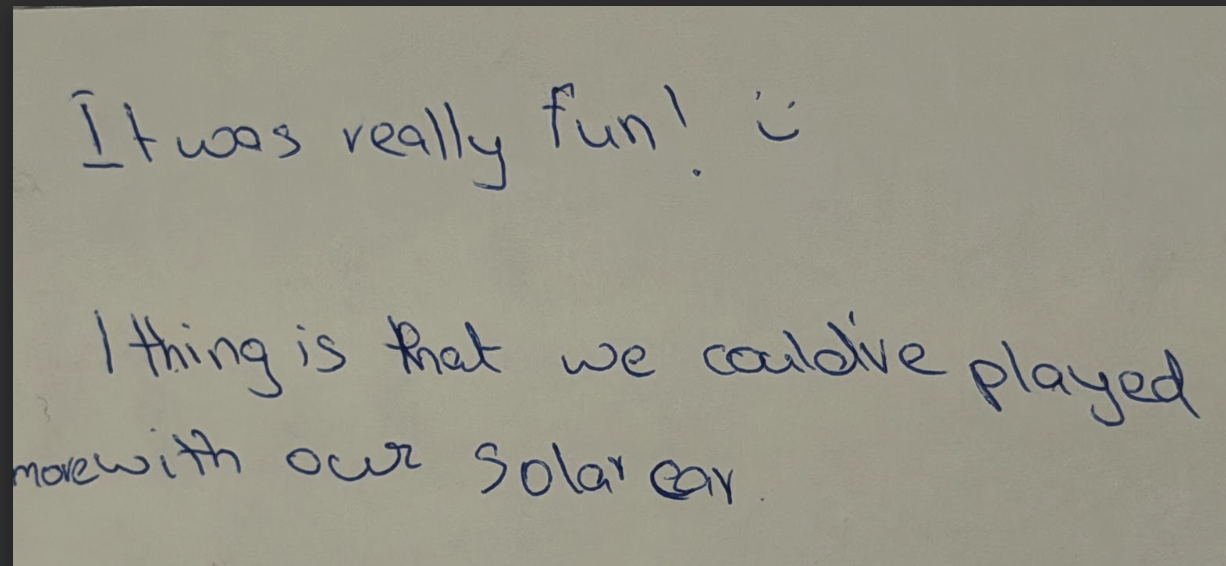 It was really fun! :)
1 thing is that we could've played
more with our solar car.